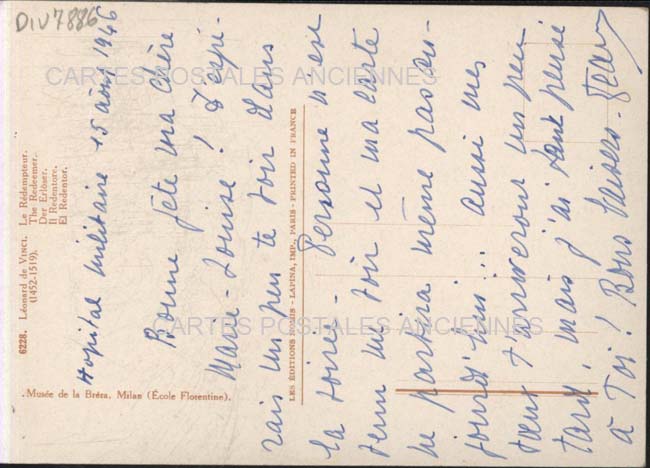 DIV7886
CARTES POSTALES ANCIENNES
CARTES POSTALES ANCIENNES
6228. Léonard de VINCI. Le Rédempteur.
(1452-1519). The Redeemer.
Der Erlöser.
Il Redentore.
El Redentor.
Musée de la Bréra, Milan (École Florentine).
LES ÉDITIONS NOMIS - LAPINA, IMP., PARIS - PRINTED IN FRANCE
Hôpital militaire 15 août 1946
Bonne fête ma chère
Marie-Louise ! J'espé-
rais un peu te voir dans
la soirée - Personne n'est
venu me voir et ma carte
ne partira même pas au-
jourd'hui !.. aussi mes
vœux t'arriveront un peu
tard ! mais j'ai tant pensé
à Toi ! Bons baisers. Jean